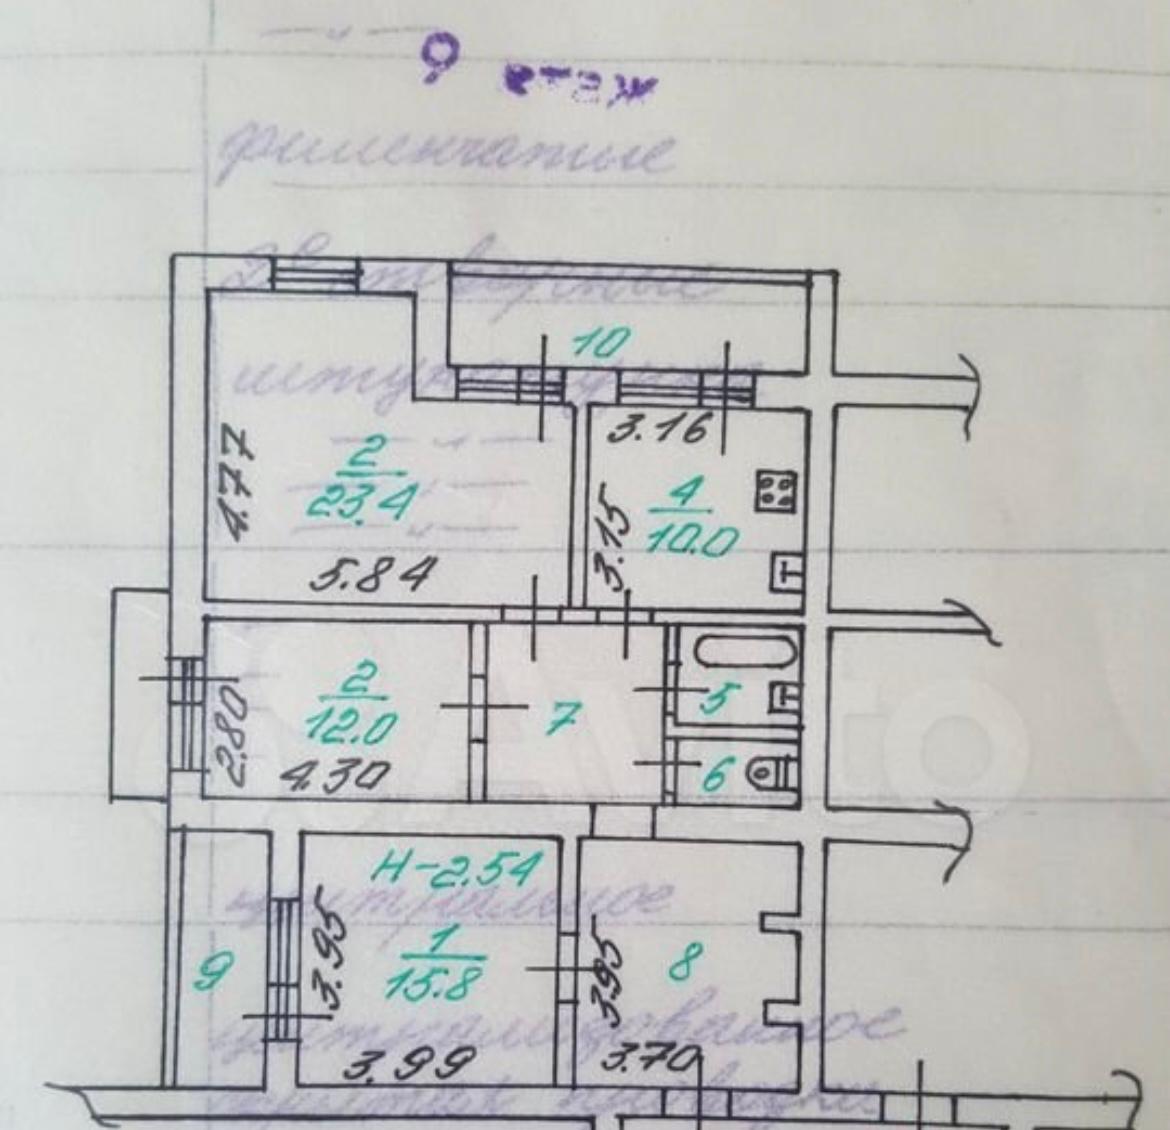 9 этаж
филенчатые
створные
10
3.16
4.77
2
23.4
3.15
4
10.0
5.84
2
12.0
2.80
4.30
7
5
6
Avito
H-2.54
3.95
1
15.8
3.95
8
9
3.99
3.70